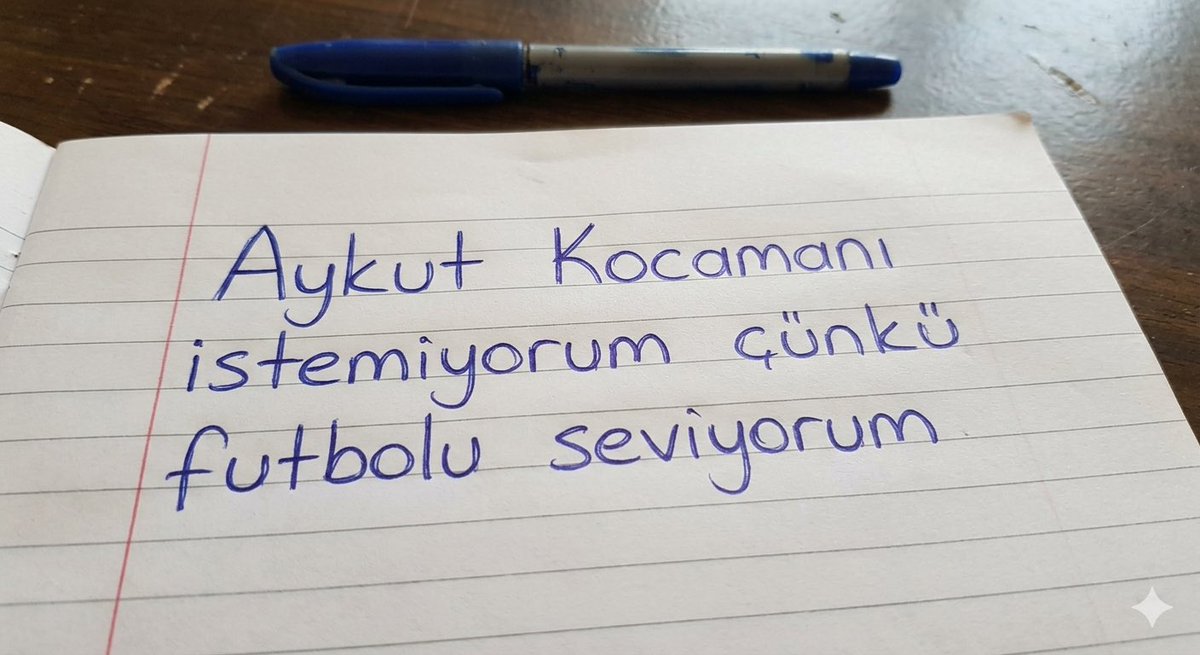 Aykut Kocamanı
istemiyorum çünkü
futbolu seviyorum